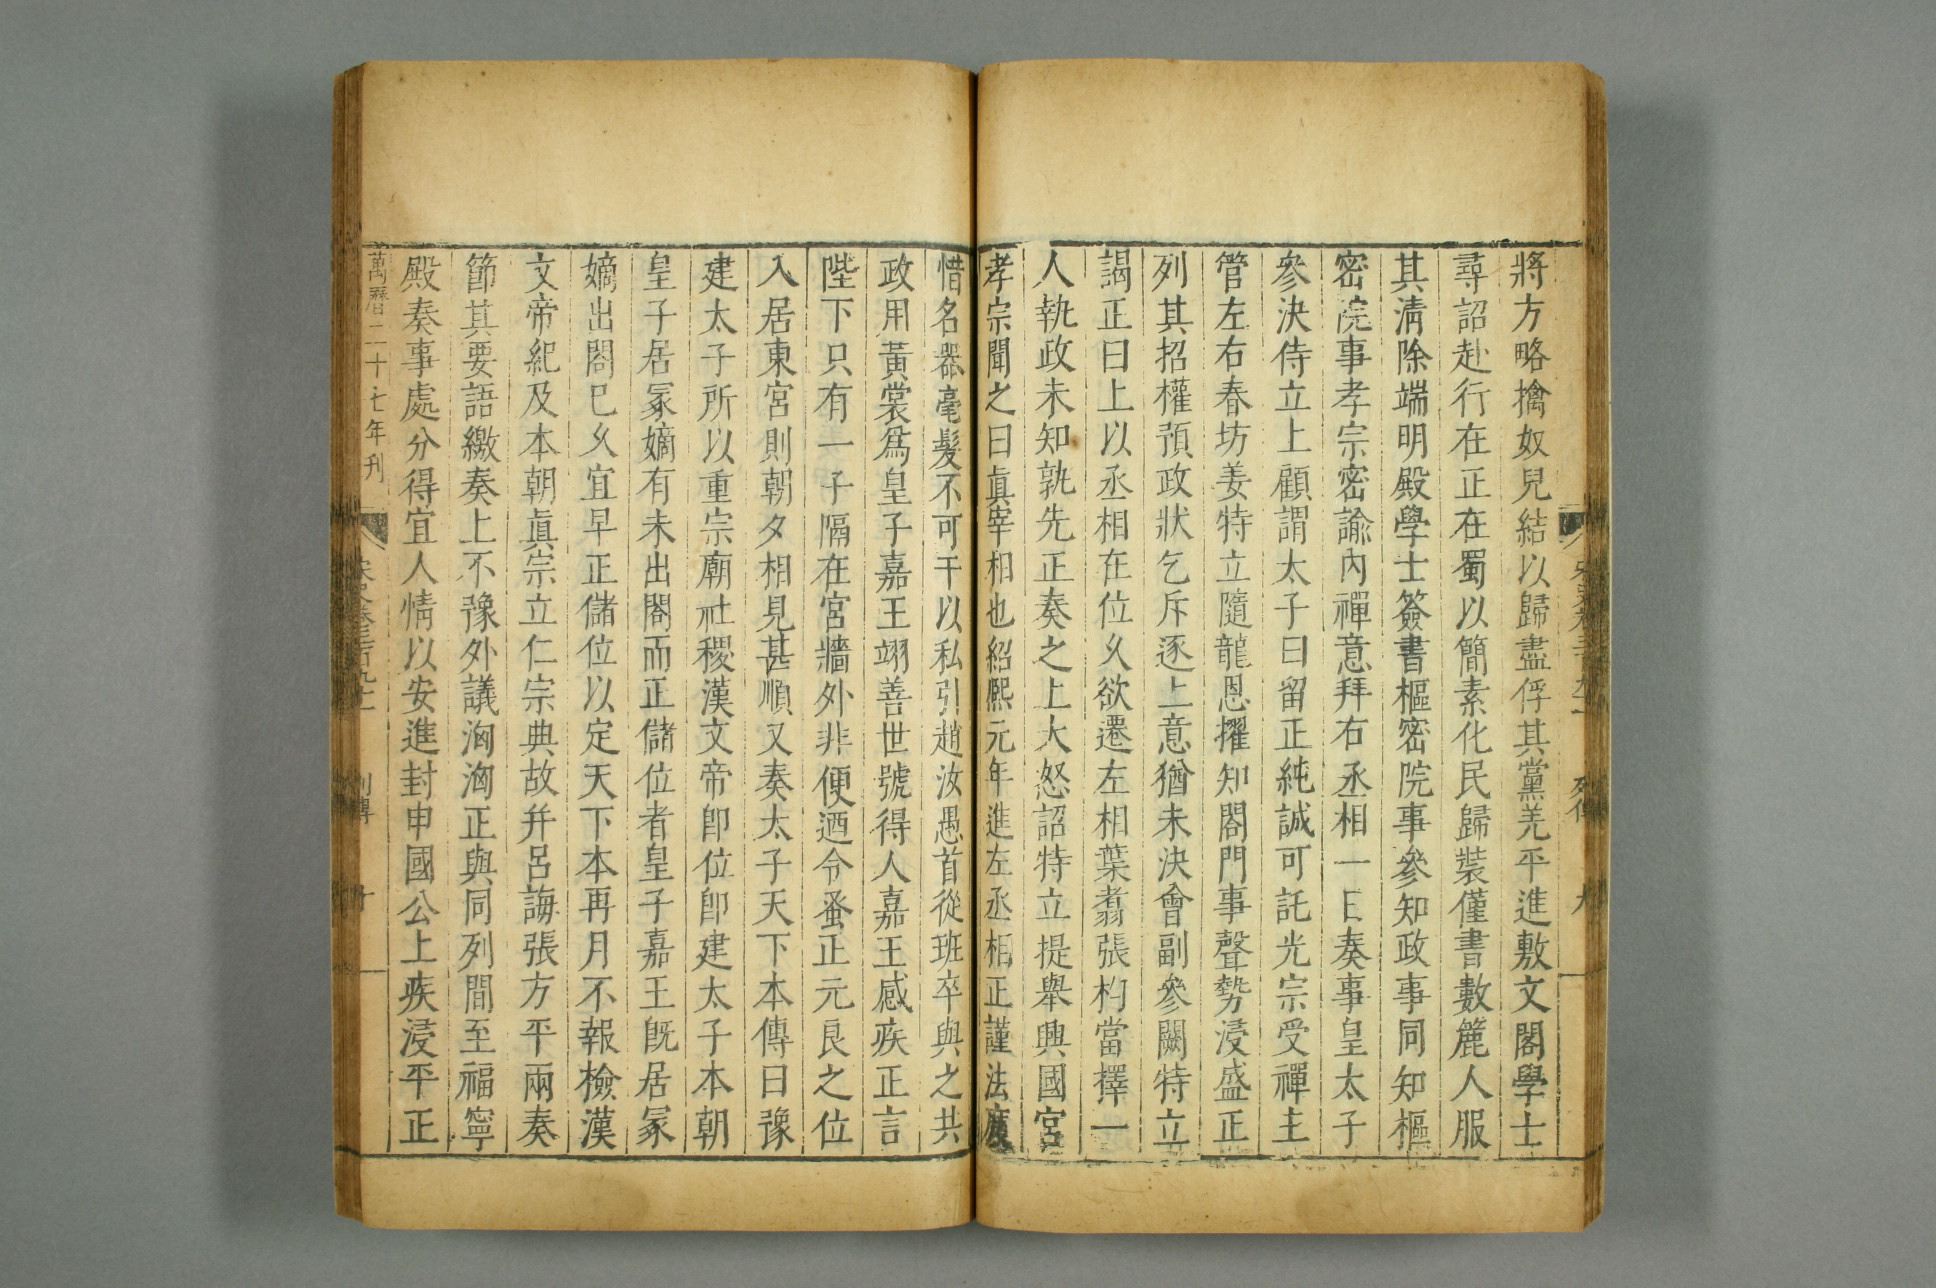 將方略擒奴兒結以歸盡俘其黨羌平進敷文閣學士
尋詔赴行在正在蜀以簡素化民歸裝僅書數簏人服
其清除端明殿學士簽書樞密院事參知政事同知樞
密院事孝宗密諭內禪意拜右丞相一日奏事皇太子
參決侍立上顧謂太子曰留正純誠可託光宗受禪主
管左右春坊姜特立隨龍恩擢知閤門事聲勢浸盛正
列其招權預政狀乞斥逐上意猶未決會副參闕特立
謁正曰上以丞相在位乆欲遷左相葉翥張枃當擇一
人執政未知孰先正奏之上大怒詔特立提舉興國宮
孝宗聞之曰眞宰相也紹熈元年進左丞相正謹法度
惜名器毫髮不可干以私引趙汝愚首從班卒與之共
政用黃裳爲皇子嘉王翊善世號得人嘉王感疾正言
陛下只有一子隔在宮牆外非便迺令蚤正元良之位
入居東宮則朝夕相見甚順又奏太子天下本傳曰豫
建太子所以重宗廟社稷漢文帝卽位卽建太子本朝
皇子居冢嫡有未出閤而正儲位者皇子嘉王旣居冢
嫡出閤巳乆宜早正儲位以定天下本再月不報檢漢
文帝紀及本朝眞宗立仁宗典故幷呂誨張方平兩奏
節其要語繳奏上不豫外議洶洶正與同列間至福寧
殿奏事處分得宜人情以安進封申國公上疾浸平正
萬曆二十七年刊
宋史卷三百九十一 列傳 十